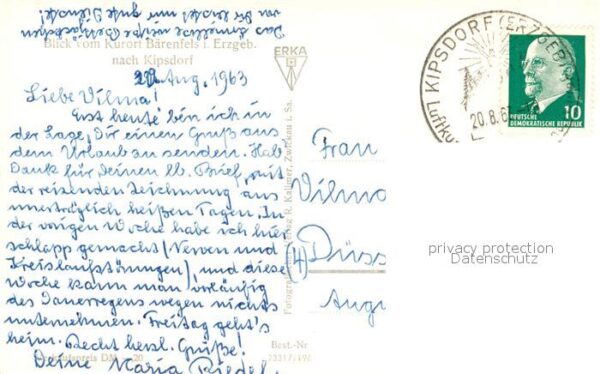 Das ärmellose weiße
von Dir leistet mir gute Dienste.
Blick vom Kurort Bärenfels i. Erzgeb.
nach Kipsdorf
ERKA
20. Aug. 1963
Liebe Vilma!
Erst heute bin ich in
der Lage, Dir einen Gruß aus
dem Urlaub zu senden. Hab
Dank für Deinen lb. Brief, mit
der reizenden Zeichnung aus
unerträglich heißen Tagen. In
der vorigen Woche habe ich hier
schlapp gemacht (Nerven und
Kreislaufstörungen), und diese
Woche kann man vorläufig
des Dauerregens wegen nichts
unternehmen. Freitag geht's
heim. Recht herzl. Grüße!
Deine Maria Riedel.
Verkaufspreis DM -.20
Best.-Nr
R. Kallmer, Zwickau i. Sa.
Frau
Vilma
(4) Düss
Augu
KIPSDORF (ERZGEB
20.8.6
Luftku
10
DEUTSCHE
DEMOKRATISCHE REPUBLIK
privacy protection
Datenschutz